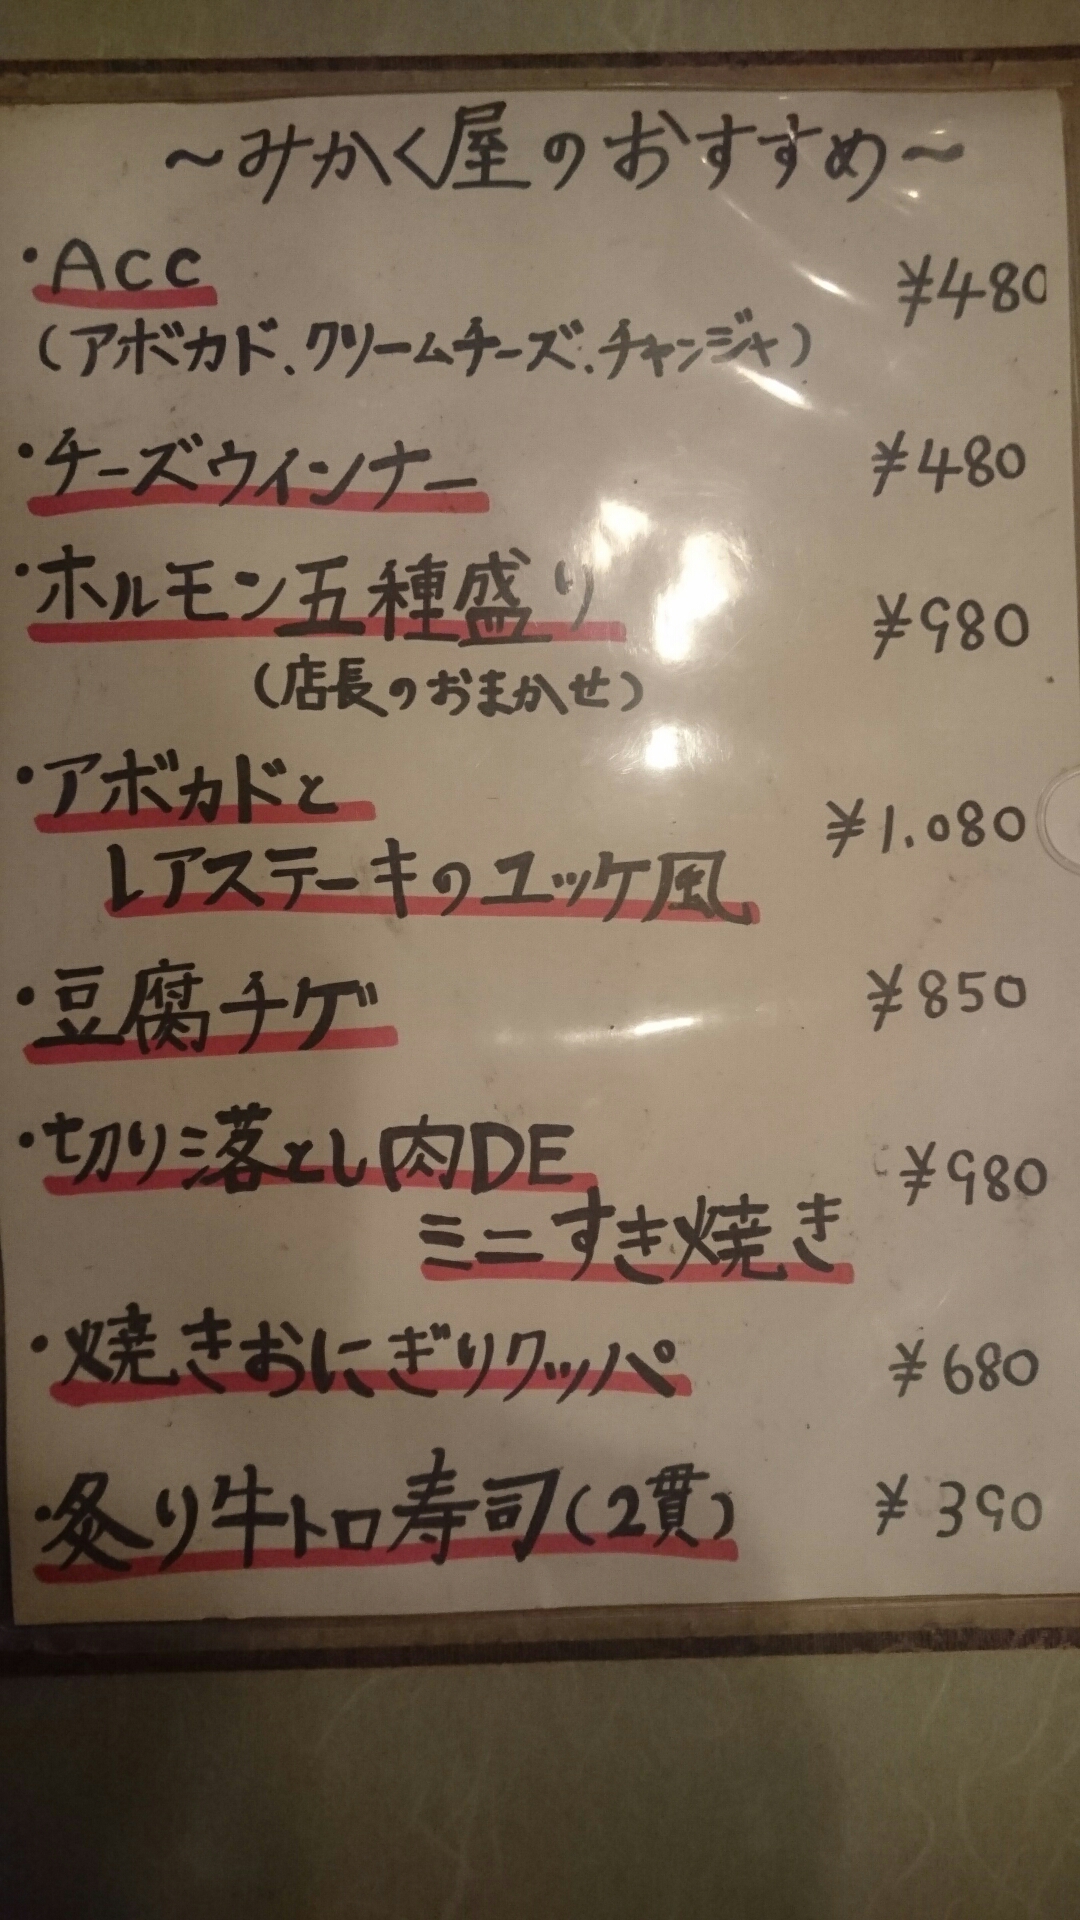 ～みかく屋のおすすめ～
・Acc ¥480
(アボカド、クリームチーズ、チャンジャ)
・チーズウインナー ¥480
・ホルモン五種盛り ¥980
(店長のおまかせ)
・アボカドと
レアステーキのユッケ風 ¥1.080
・豆腐チゲ ¥850
・切り落とし肉DE ¥980
ミニすき焼き
・焼きおにぎりクッパ ¥680
・炙り牛トロ寿司(2貫) ¥390